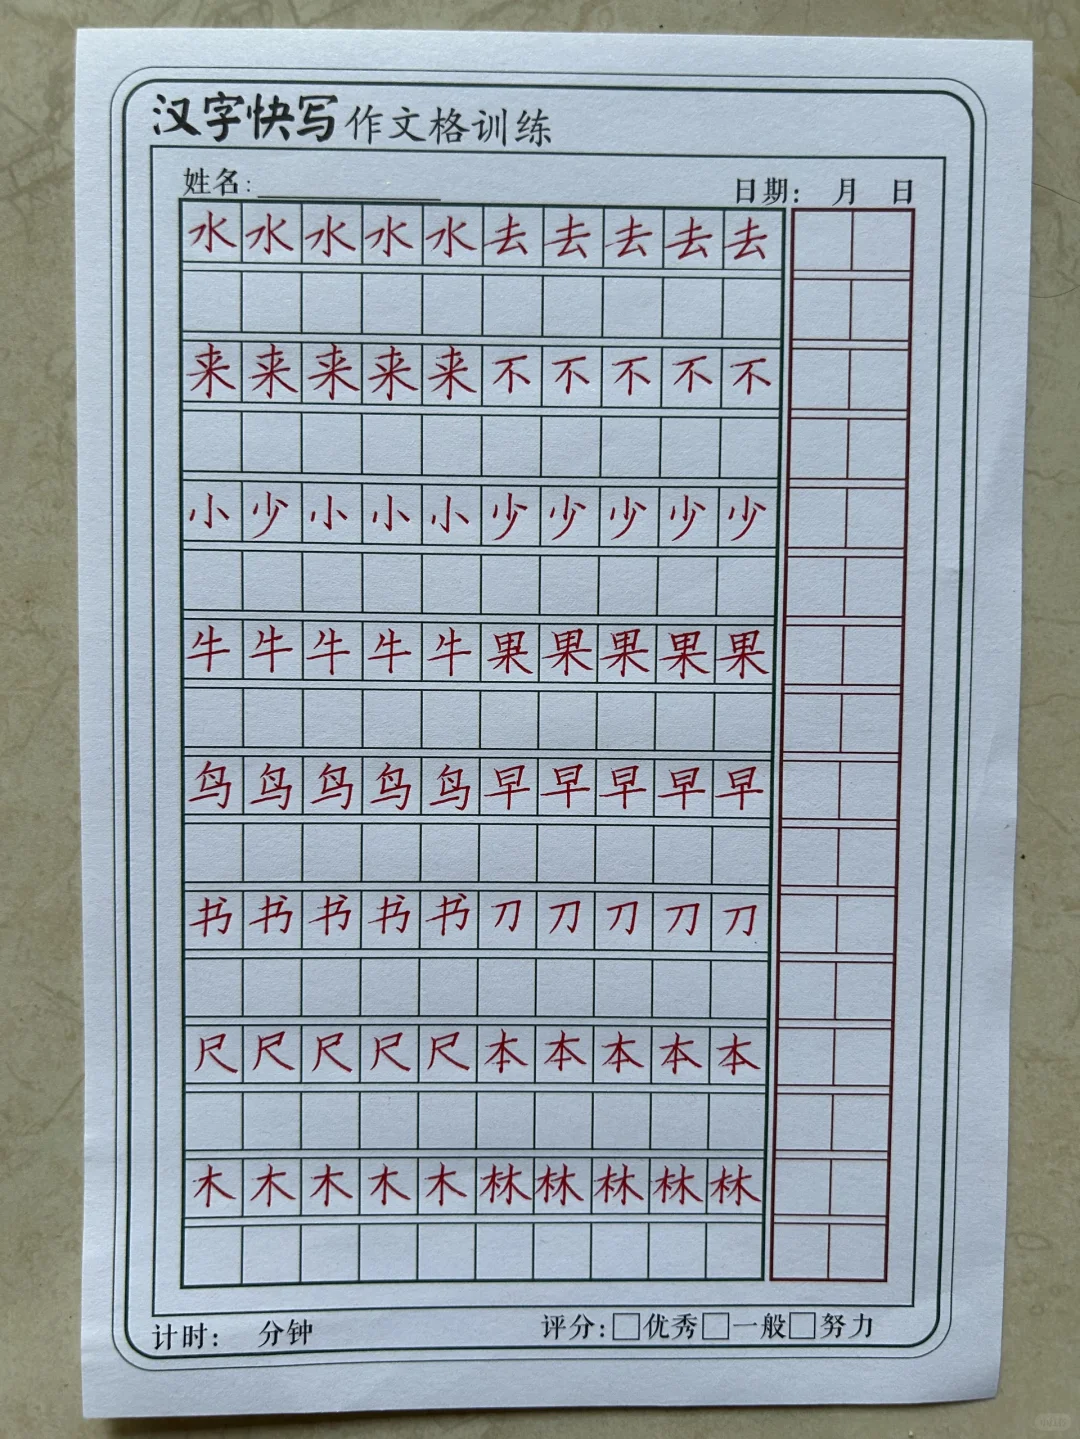 汉字快写作文格训练
姓名: 日期: 月 日
水水水水水去去去去去
来来来来来不不不不不
小少小小小少少少少少
牛牛牛牛牛果果果果果
鸟鸟鸟鸟鸟早早早早早
书书书书书刀刀刀刀刀
尺尺尺尺尺本本本本本
木木木木木林林林林林
计时: 分钟 评分:□优秀□一般□努力